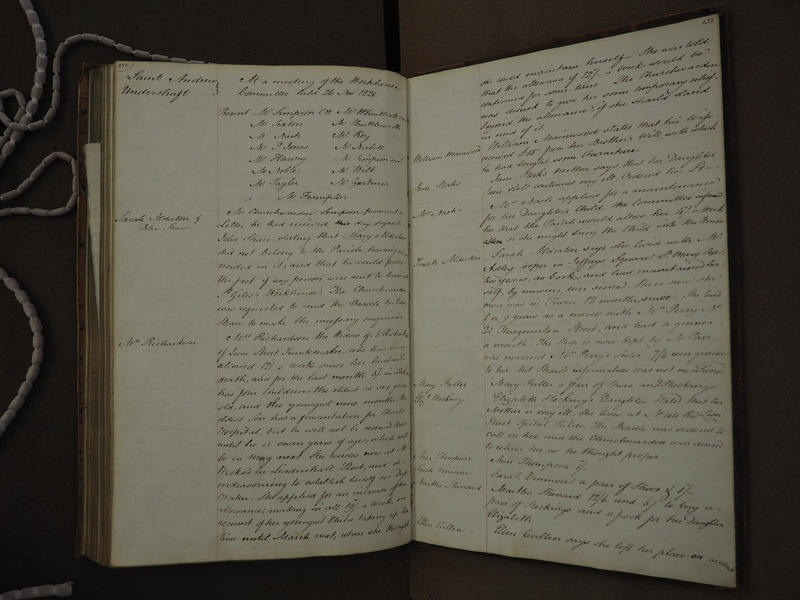 252
Saint Andrew
Undershaft
At a meeting of the Workhouse
Committee held 26 Nov 1821
Present Mr Simpson CW Mr
Mr Eaton Mr
Mr Nash Mr Roy
Mr P Jones Mr
Mr Harvey Mr Simpson
Mr Noble Mr Witt
Mr Taylor Mr Gardiner
Mr Frampton
Sarah Alderton &
John Shaw
Mr Churchwarden Simpson produced a
Letter he had received this day, signed
John Shaw, stating that Mary Alderton
did not belong to the Parish, having never
resided in it, and that he could prove
the fact if any person were sent to him at
St Giles's Workhouse. The Churchwarden
was requested to send the Beadle to John
Shaw to make the necessary enquiries
Mrs Richardson
Mrs Richardson the Widow of W Richardson
of Lime Street Trunkmaker, who has been
allowed 12/ a week since her husband's
death, and for the last month 5/ in addition
has four Children the eldest is six years
old, and the youngest nine months the
eldest Son has a presentation for Christs
Hospital, but he will not be received there
until he is seven years of age, which will
be in May next. She resides now at Mr
Weeks's in Leadenhall Street, and is
endeavouring to establish herself as a
maker. She applied for an increase of her
allowance making in all 19/ a week on
account of her youngest Child taking up her
time until March next, when she thought
253
she could maintain herself. She was told
that the allowance of 12/ a week would be
continued for some time. The Churchwarden
was desired to give her some temporary relief,
beyond the allowance, if she should stand
in need of it.
William Mainwood
William Mainwood states that his Wife
received £15 from her Brother's Will with which
he had bought some Furniture
Jane
Jane mother says that her Daughter
Jane still continues very ill. Ordered her 5/
Mrs Nash
Mrs Nash applied for a maintenance
for her Daughters Child the Committee informed
her that the Parish would allow her 4/ a week
or she might bring the Child into the House
Sarah Alderton
Sarah Alderton says she lived with Mr
Astley Cooper in Jefferys Square St Mary Axe,
two years, as Cook, and has maintained her
self, by nursing, ever since. She says she
was in Service 12 months since. She lived
8 or 9 years as a nurse with Mrs Perry No
21 Throgmorton Street, and had a guinea
a month. The Shop is now kept by Mr Parr,
who married Mrs Perry's Sister. 7/6 were given
to her but Shaw's information was not mentioned
Mary Fuller
Mary Fuller a pair of Shoes and Stockings
Elizth Hocking
Elizabeth Hocking's Daughter stated that her
Mother is very ill. She lives at No 106 Red Lion
Street Spital Fields. The Beadle was ordered to
call on her and the Churchwarden was desired
to relieve her as he thought proper.
Ann Thompson
Ann Thompson 5/
Sarah Venimore
Sarah Venimore a pair of Shoes & 1/
Martha Sherrard
Martha Sherrard 12/6 and 5/ to buy a
pair of Stockings and a frock for her Daughter
Elizabeth
Ellen Cullen
Ellen Cullen says she left her place on account